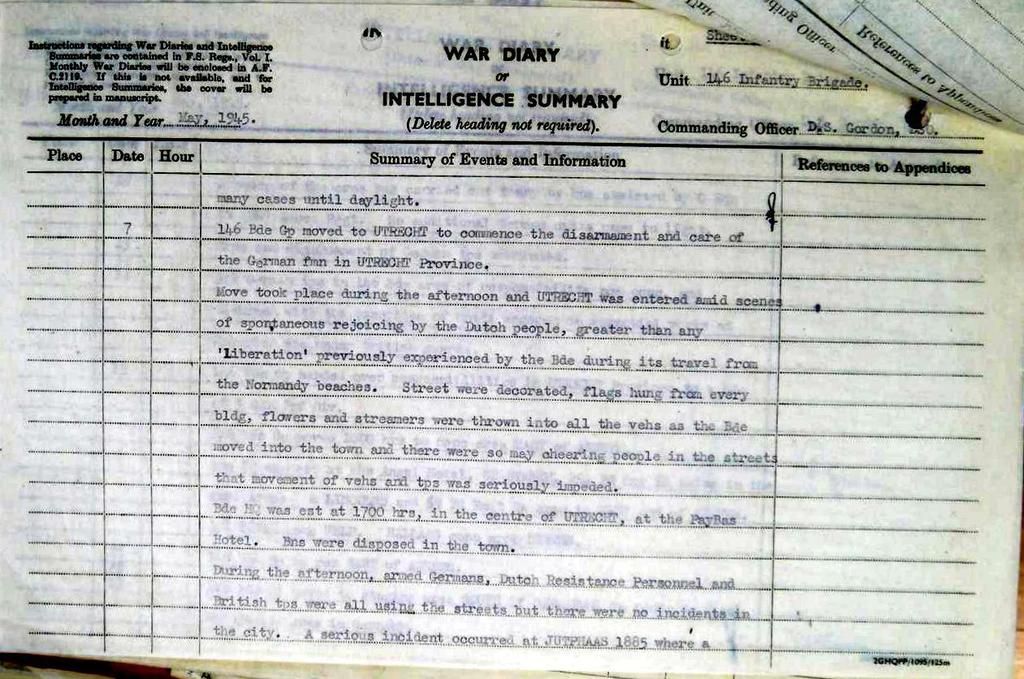 Instructions regarding War Diaries and Intelligence
Summaries are contained in F.S. Regs., Vol. I.
Monthly War Diaries will be enclosed in A.F.
C.2119. If this is not available, and for
Intelligence Summaries, the cover will be
prepared in manuscript.
Month and Year May, 1945.
WAR DIARY
or
INTELLIGENCE SUMMARY
(Delete heading not required).
Unit 146 Infantry Brigade.
Commanding Officer D.S. Gordon,
References to Appendices
Place Date Hour Summary of Events and Information References to Appendices
many cases until daylight.
7 146 Bde Gp moved to UTRECHT to commence the disarmament and care of
the German fmn in UTRECHT Province.
Move took place during the afternoon and UTRECHT was entered amid scenes
of spontaneous rejoicing by the Dutch people, greater than any
'liberation' previously experienced by the Bde during its travel from
the Normandy beaches. Street were decorated, flags hung from every
bldg, flowers and streamers were thrown into all the vehs as the Bde
moved into the town and there were so may cheering people in the streets
that movement of vehs and tps was seriously impeded.
Bde HQ was est at 1700 hrs, in the centre of UTRECHT, at the PayBas
Hotel. Bns were disposed in the town.
During the afternoon, armed Germans, Dutch Resistance Personnel and
British tps were all using the streets but there were no incidents in
the city. A serious incident occurred at JUTPHAAS 1885 where a
2GHQPP/1095/125m